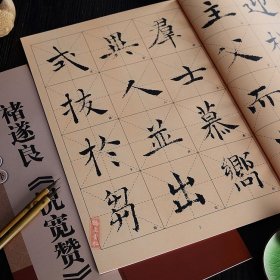 主父而
羣士慕嚮
異人並出
式拔於芻
褚遂良
《倪宽赞》